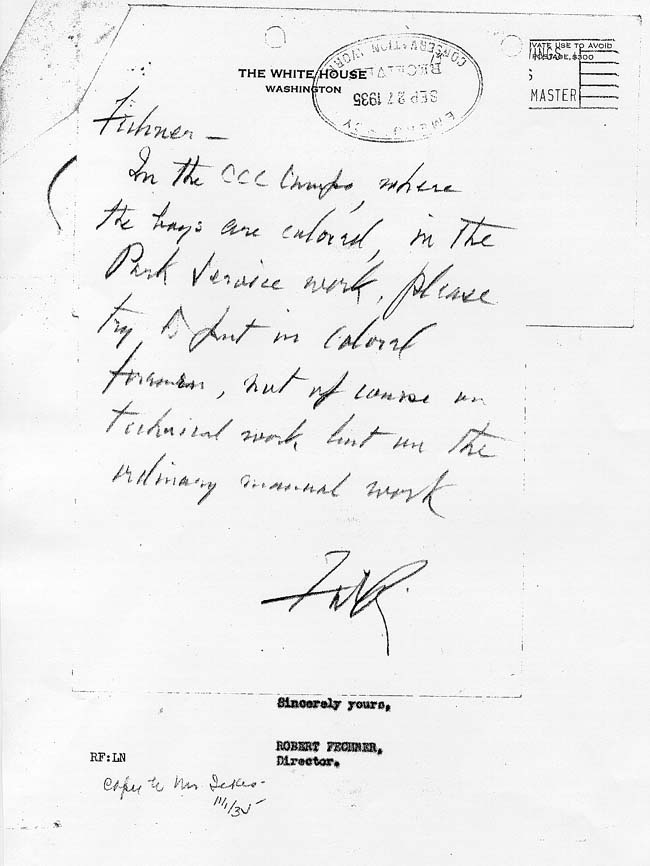 VATE USE TO AVOID
POSTAGE, $300
MASTER
THE WHITE HOUSE
WASHINGTON
EMERGENCY
CONSERVATION WORK
RECEIVED
SEP 27 1935
Fechner –
In the CCC Camps, where
the boys are colored, in the
Park Service work, please
try to put in colored
foremen, not of course in
technical work but in the
ordinary manual work
FDR
Sincerely yours,
ROBERT FECHNER,
Director.
RF:LN
Copy to Mr Ickes-
11/1/35